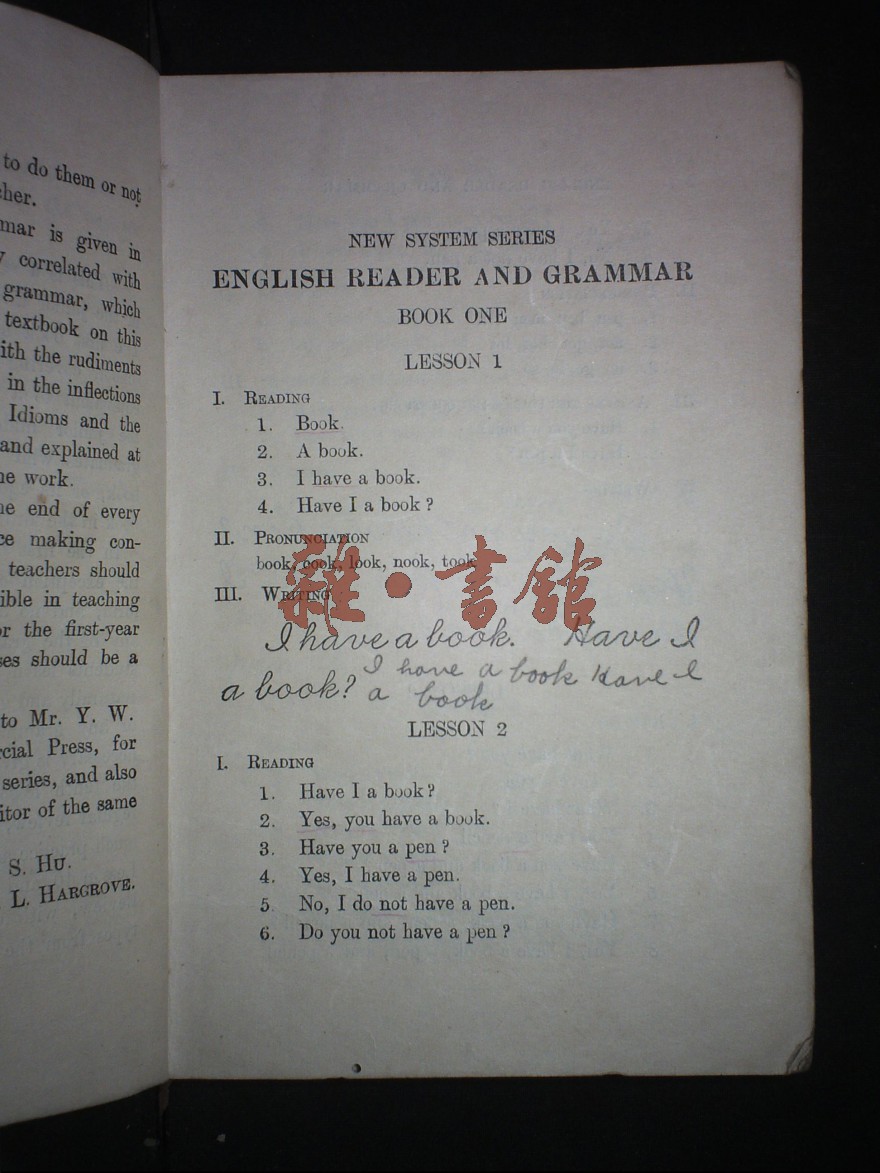 to do them or not
cher.
mar is given in
y correlated with
grammar, which
textbook on this
ith the rudiments
in the inflections
Idioms and the
and explained at
e work.
e end of every
ce making con-
teachers should
ible in teaching
or the first-year
ses should be a
to Mr. Y. W.
rcial Press, for
series, and also
itor of the same
S. HU.
L. HARGROVE.
NEW SYSTEM SERIES
ENGLISH READER AND GRAMMAR
BOOK ONE
LESSON 1
I. READING
1. Book.
2. A book.
3. I have a book.
4. Have I a book?
II. PRONUNCIATION
book, cook, look, nook, took
III. WRITING
雜·書館
I have a book. Have I
a book?
I have a book Have I
a book
LESSON 2
I. READING
1. Have I a book?
2. Yes, you have a book.
3. Have you a pen?
4. Yes, I have a pen.
5. No, I do not have a pen.
6. Do you not have a pen?